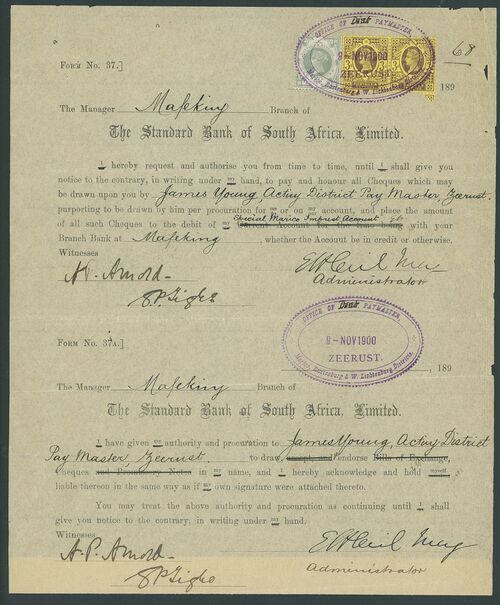 OFFICE OF Dist. PAYMASTER,
9-NOV 1900
ZEERUST.
Marico, Rustenburg & W. Lichtenburg Districts.
68
FORM NO. 37.]
189
The Manager Mafeking Branch of
The Standard Bank of South Africa, Limited.
I hereby request and authorise you from time to time, until I shall give
notice to the contrary, in writing under my hand, to pay and honour all Cheques which may
be drawn upon you by James Young, Actng District Pay Master, Zeerust.
purporting to be drawn by him per procuration for me or on my account, and place the amount
Special Marico Imprest Account
of all such Cheques to the debit of my Current Account for the time being with your
Branch Bank at Mafeking, whether the Account be in credit or otherwise.
Witnesses
A. P. Arnold
Administrator
OFFICE OF Dist. PAYMASTER,
9-NOV 1900
ZEERUST.
Marico, Rustenburg & W. Lichtenburg Districts.
FORM NO. 37A.]
, 189
The Manager Mafeking Branch of
The Standard Bank of South Africa, Limited.
I have given my authority and procuration to James Young, Actng District
Pay Master Zeerust to draw, accept, and endorse Bills of Exchange,
Cheques and Promissory Notes in my name, and I hereby acknowledge and hold myself
liable thereon in the same way as if my own signature were attached thereto.
You may treat the above authority and procuration as continuing until I shall
give you notice to the contrary, in writing under my hand.
Witnesses
A. P. Arnold
Administrator